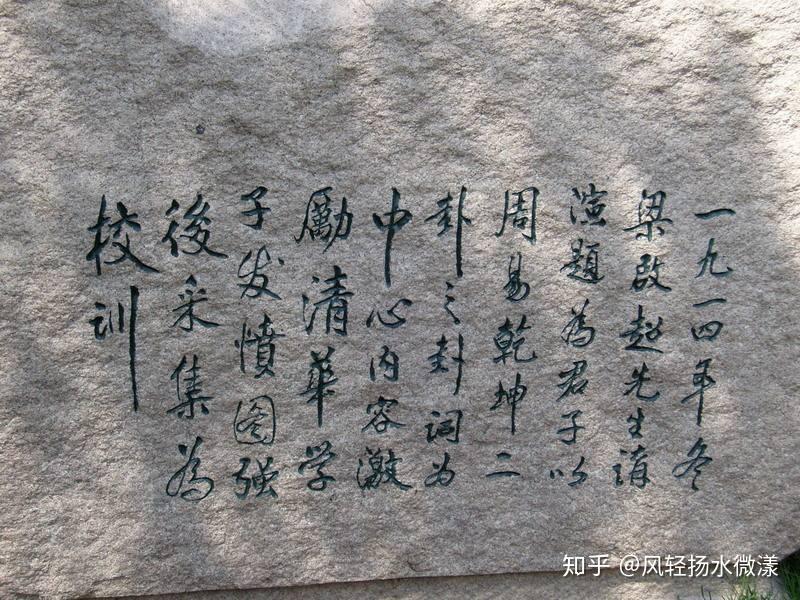 一九一四年冬
梁啟超先生講
演題為君子以
周易乾坤二
卦之卦词为
中心内容激
勵清華学
子发憤图强
後采集為
校训
知乎 @风轻扬水微漾